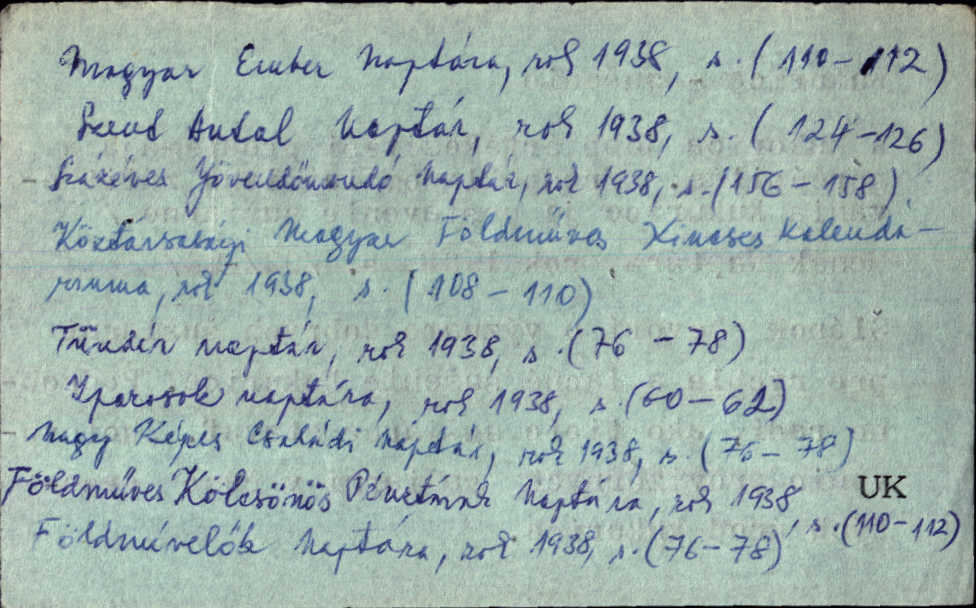 Magyar Ember Naptára, rok 1938, s. (110-112)
Szent Antal Naptár, rok 1938, s. (124-126)
- Százéves Jövendőmondó Naptár, rok 1938, s. (156-158)
Köztársasági Magyar Földmüves Kincses Kalendá-
riuma, rok 1938, s. (108-110)
Tündér naptár, rok 1938, s. (76-78)
Iparosok naptára, rok 1938, s. (60-62)
Nagy Képes Családi Naptár, rok 1938, s. (76-78)
Földmüves Kölcsönös Pénztárak Naptára, rok 1938, s. (110-112)
UK
Földmüvelők Naptára, rok 1938, s. (76-78)